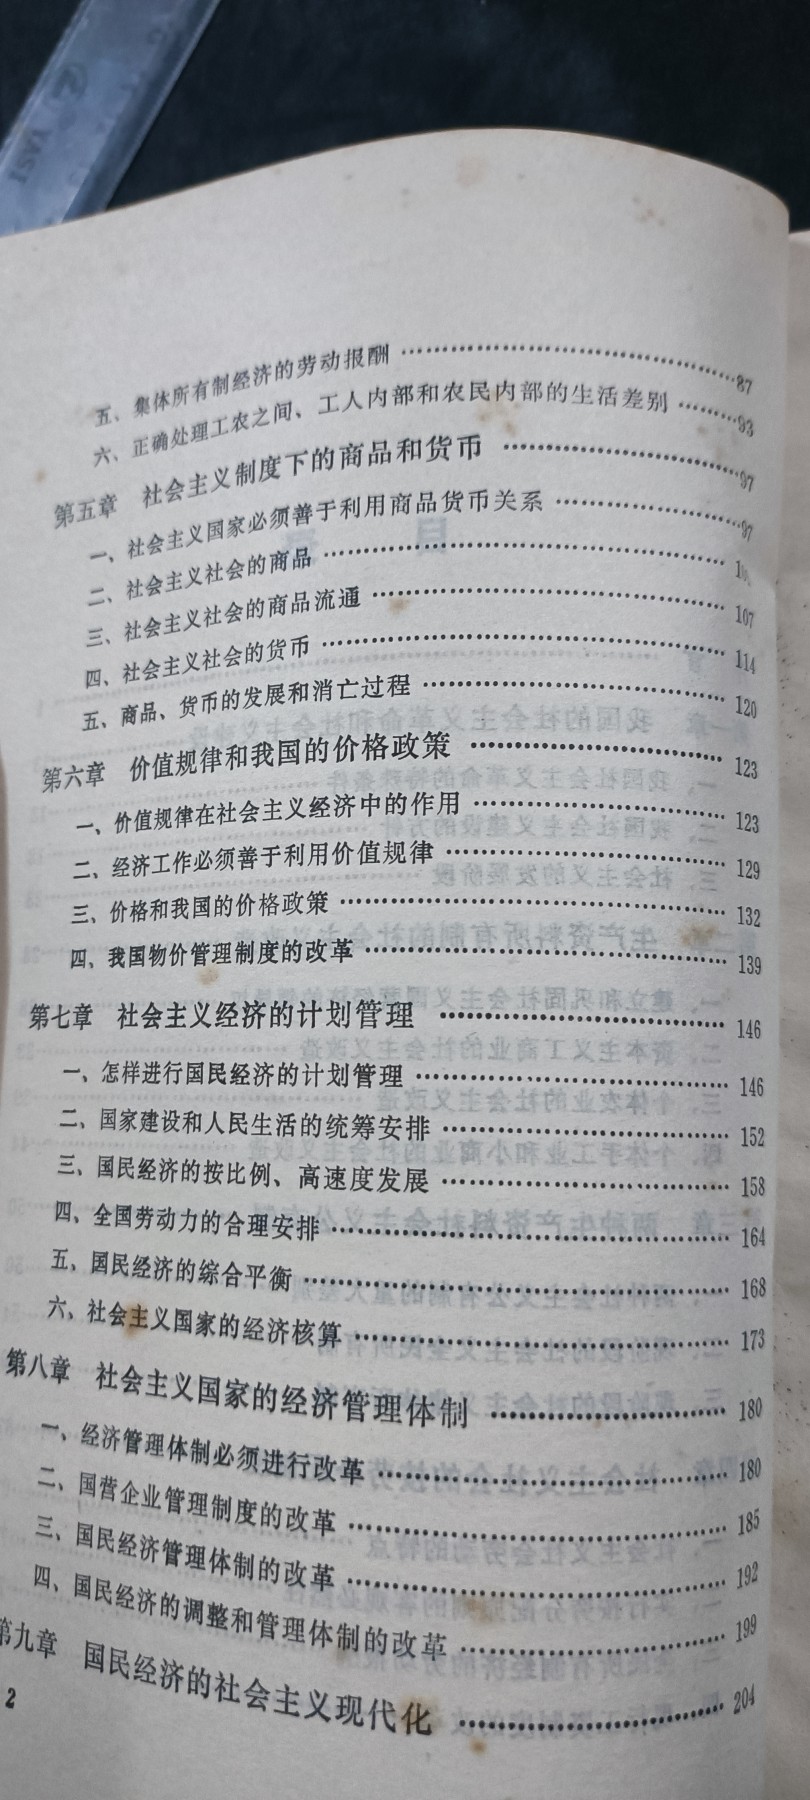 五、集体所有制经济的劳动报酬 …… 87
六、正确处理工农之间、工人内部和农民内部的生活差别 …… 93
第五章 社会主义制度下的商品和货币 …… 97
一、社会主义国家必须善于利用商品货币关系 …… 97
二、社会主义社会的商品 ……
三、社会主义社会的商品流通 …… 107
四、社会主义社会的货币 …… 114
五、商品、货币的发展和消亡过程 …… 120
第六章 价值规律和我国的价格政策 …… 123
一、价值规律在社会主义经济中的作用 …… 123
二、经济工作必须善于利用价值规律 …… 129
三、价格和我国的价格政策 …… 132
四、我国物价管理制度的改革 …… 139
第七章 社会主义经济的计划管理 …… 146
一、怎样进行国民经济的计划管理 …… 146
二、国家建设和人民生活的统筹安排 …… 152
三、国民经济的按比例、高速度发展 …… 158
四、全国劳动力的合理安排 …… 164
五、国民经济的综合平衡 …… 168
六、社会主义国家的经济核算 …… 173
第八章 社会主义国家的经济管理体制 …… 180
一、经济管理体制必须进行改革 …… 180
二、国营企业管理制度的改革 …… 185
三、国民经济管理体制的改革 …… 192
四、国民经济的调整和管理体制的改革 …… 199
第九章 国民经济的社会主义现代化 …… 204
2